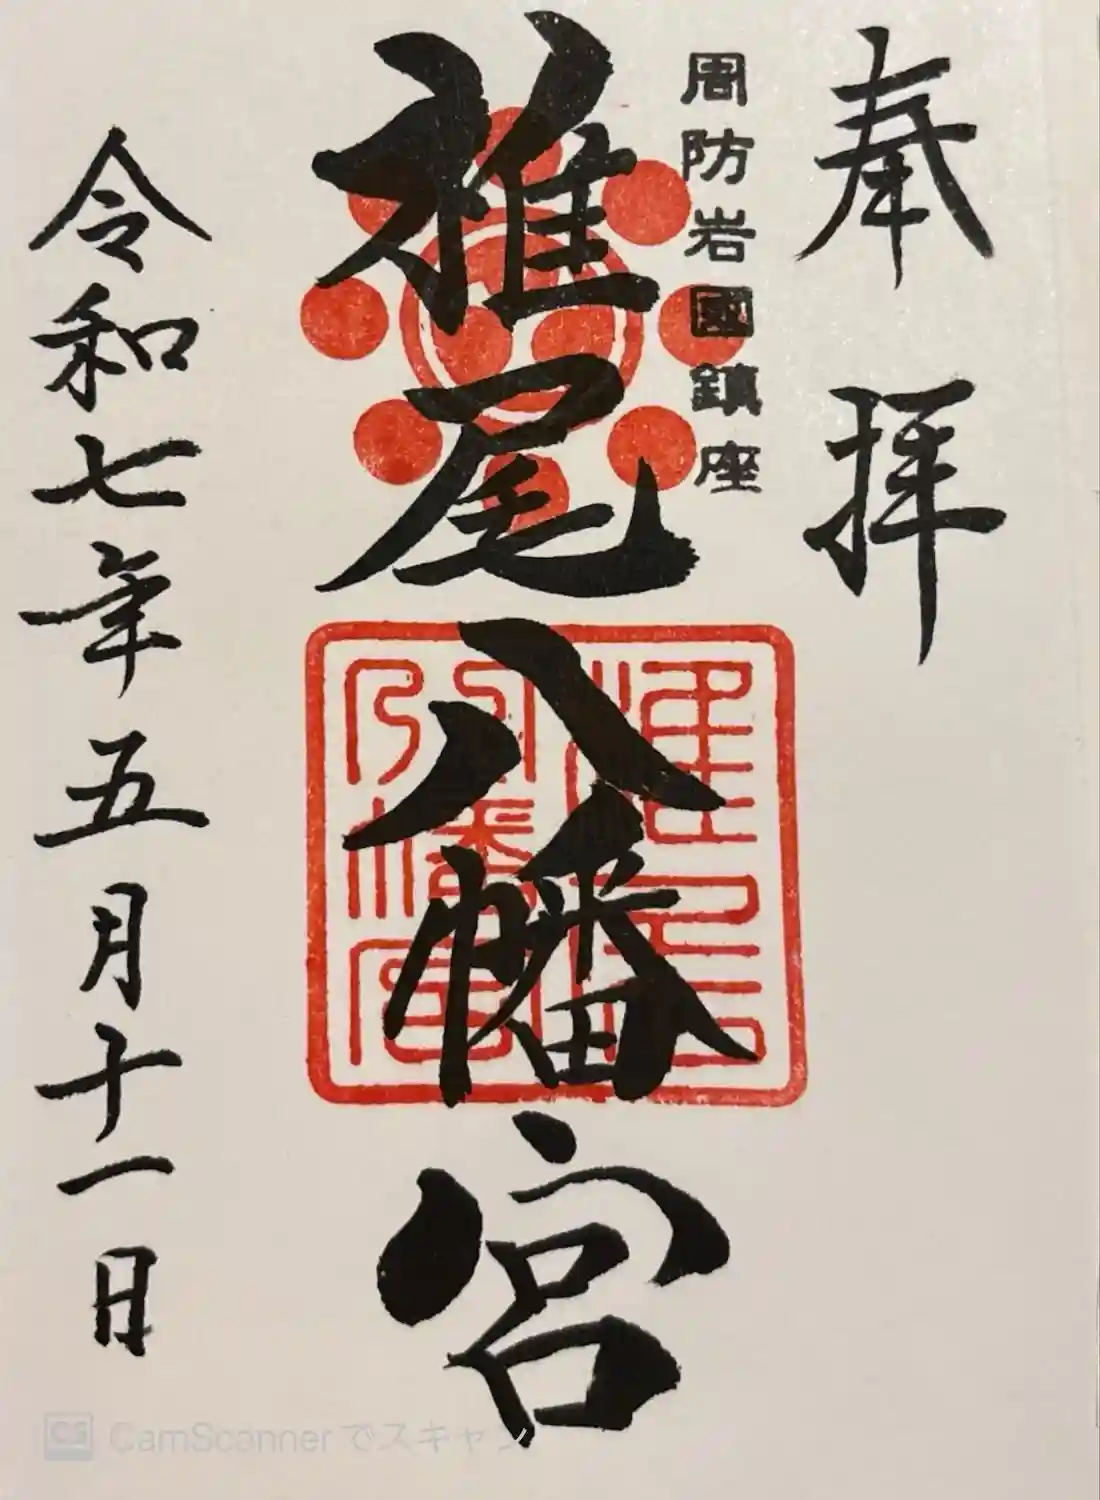 奉拝
周防岩國鎮座
椎尾八幡宮
椎尾
八幡宮
令和七年五月十一日
CS CamScannerでスキャン